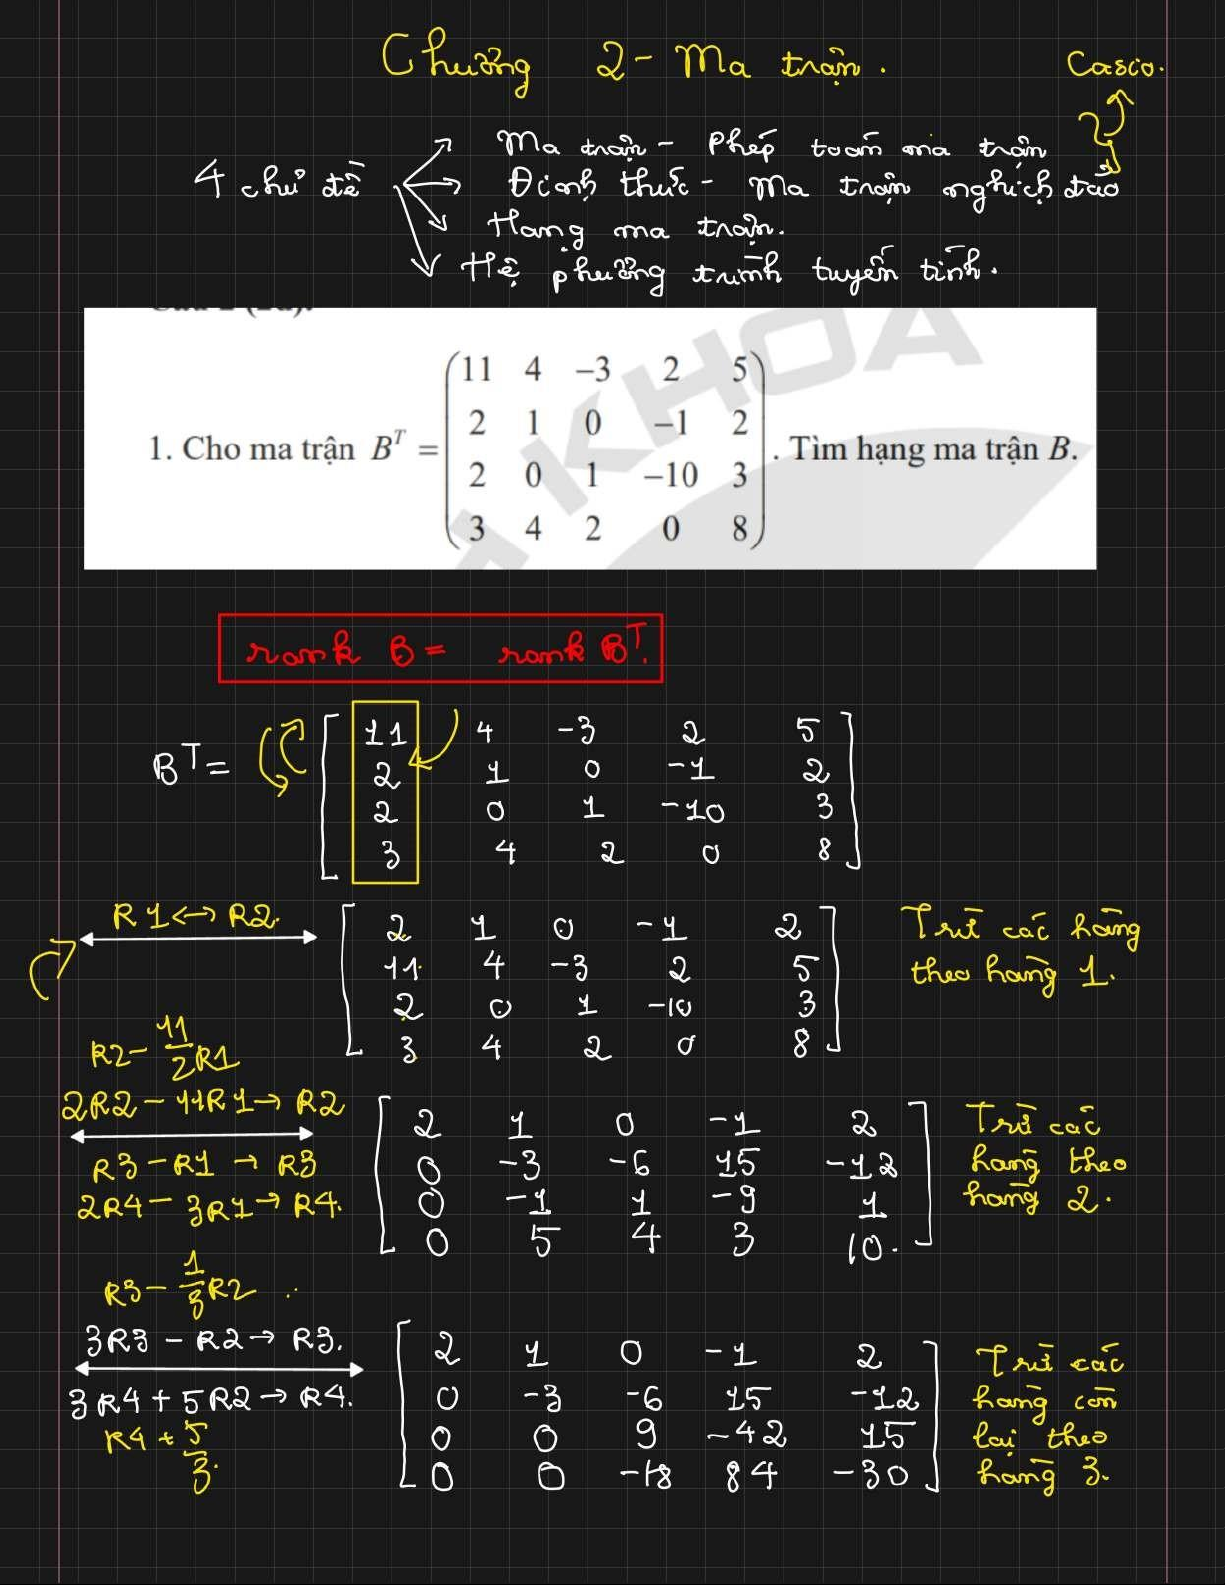 Chương 2 - Ma trận.
Casio.
4 chủ đề
Ma trận - Phép toán ma trận
Định thức - Ma trận nghịch đảo
Hạng ma trận.
Hệ phương trình tuyến tính.
1. Cho ma trận B^T = (11 4 -3 2 5
2 1 0 -1 2
2 0 1 -10 3
3 4 2 0 8). Tìm hạng ma trận B.
KHOA
rank B = rank B^T.
B^T = [11 4 -3 2 5
2 1 0 -1 2
2 0 1 -10 3
3 4 2 0 8]
R1 <-> R2.
[2 1 0 -1 2
11 4 -3 2 5
2 0 1 -10 3
3 4 2 0 8]
Trừ các hàng
theo hàng 1.
R2 - 11/2 R1
2R2 - 11R1 → R2
R3 - R1 → R3
2R4 - 3R1 → R4.
[2 1 0 -1 2
0 -3 -6 15 -12
0 -1 1 -9 1
0 5 4 3 10.]
Trừ các
hàng theo
hàng 2.
R3 - 1/3 R2 ..
3R3 - R2 → R3.
3R4 + 5R2 → R4.
R4 + 5/3.
[2 1 0 -1 2
0 -3 -6 15 -12
0 0 9 -42 15
0 0 -18 84 -30]
Trừ các
hàng còn
lại theo
hàng 3.